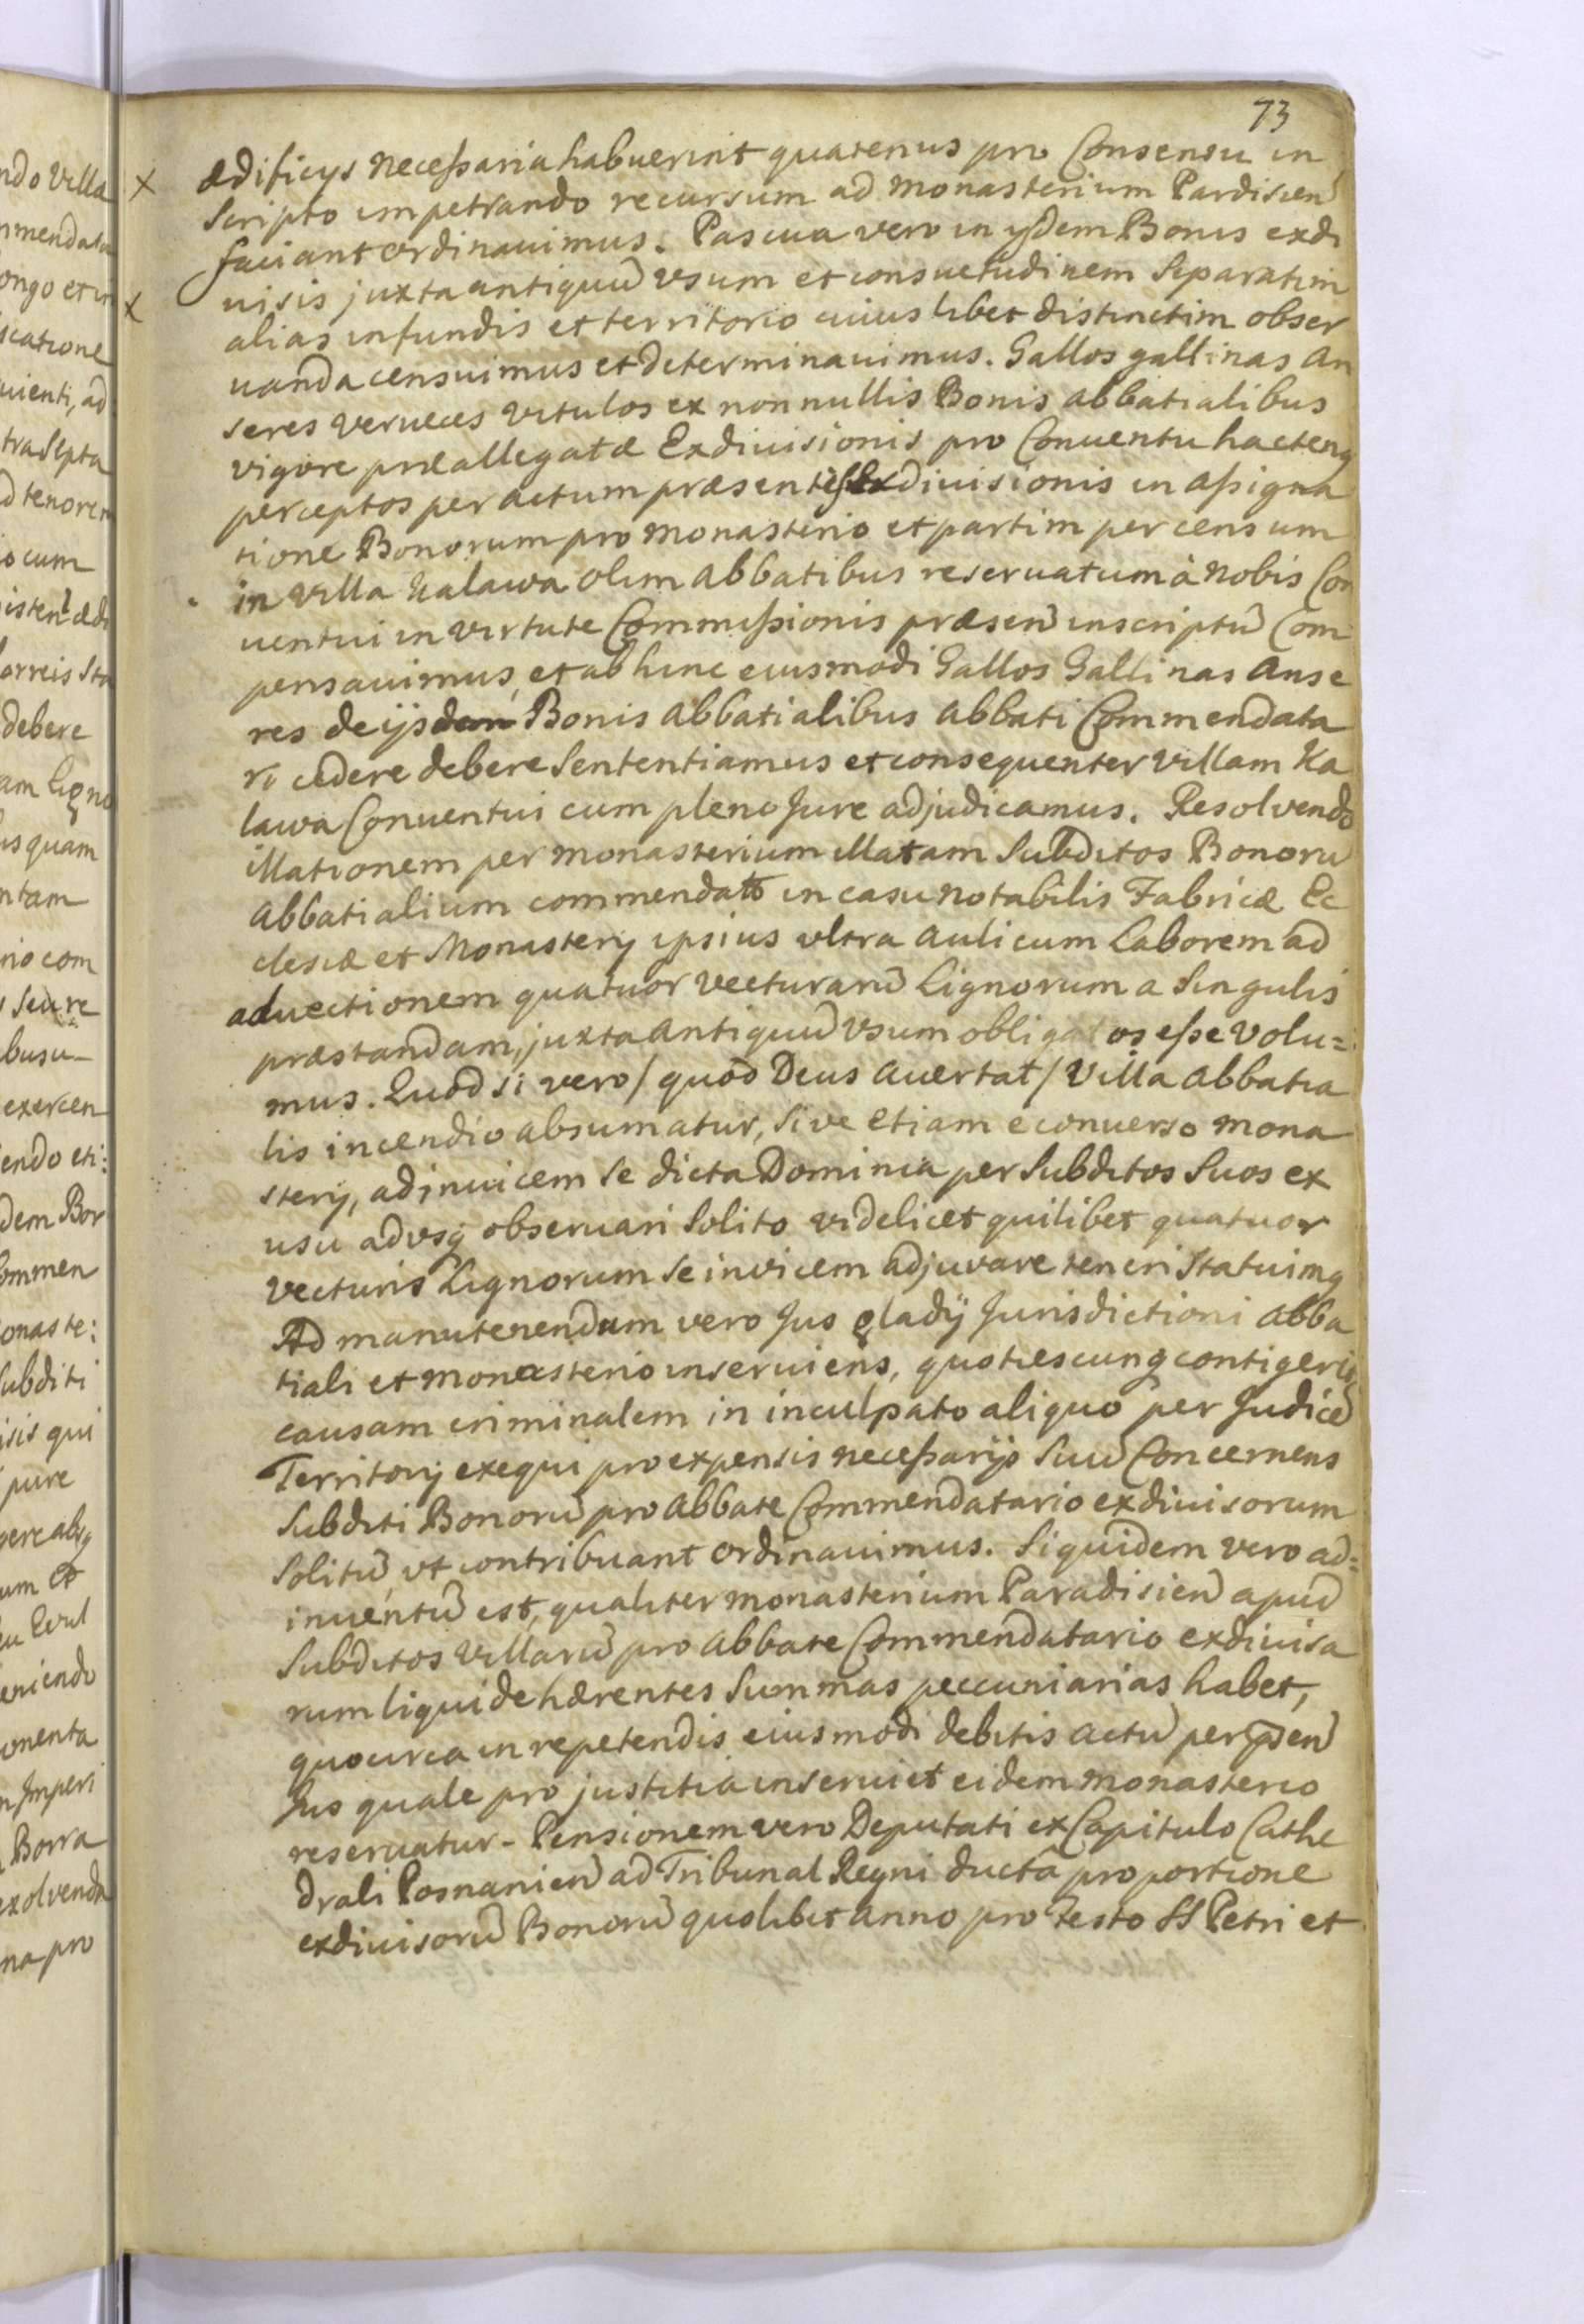 73
ædificijs necessaria habuerint quatenus pro Consensu in
scripto impetrando recursum ad monasterium Pardisien
faciant ordinauimus. Pascua vero in ijsdem Bonis exdi
uisis juxta antiquū vsum et consuetudinem separatim
alias in fundis et territorio cuius libet distinctim obser
uanda censuimus et determinauimus. Gallos gallinas an
seres verueces vitulos ex non nullis Bonis abbatialibus
vigore præallegatæ Exdiuisionis pro Conuentu hactenq
perceptos per actum præsentis Exdiuisionis in assigna
tione Bonorum pro monasterio et partim per censum
in Villa Kalawa olim abbatibus reseruatum à nobis Con
uentui in virtute Commissionis præsen inscriptū Com
pensauimus, et ab hinc eiusmodi Gallos Gallinas anse
res de ijsdem Bonis abbatialibus abbati Commendata
ri cedere debere sententiamus et consequenter villam Ka
lawa Conuentui cum pleno Jure adjudicamus. Resolvendo
illationem per monasterium illatam subditos Bonorū
abbatialium commendato in casu notabilis Fabricæ Ec
clesiæ et Monasterij ipsius vltra aulicum laborem ad
aduectionem quatuor vecturarū Lignorum a singulis
præstandam, juxta antiquū vsum obligatos esse volu=
mus. Quod si vero / quod Deus auertat / Villa abbatia
lis incendio absumatur, sive etiam e conuerso mona
sterij, ad invicem se dicta Dominia per subditos suos ex
usu ad vsq observari solito videlicet quilibet quatuor
vecturis Lignorum se invicem adjuvare teneri statuimq
Ad manutenendum vero Jus gladij Jurisdictioni abba
tiali et monasterio inseruiens, quotiescunq contigerit
causam criminalem in inculpato aliquo per Judicē
Territorij exequi pro expensis necessarijs suū Concernens
subditi Bonorū pro abbate Commendatario exdiuisorum
solitū, vt contribuant ordinauimus. Siquidem vero ad=
inuentū est, qualiter monasterium Paradisien apud
subditos villarū pro abbate Commendatario exdiuisa
rum liquide hærentes summas peccuniarias habet,
quocirca in repetendis eiusmodi debitis actū per psen
Jus quale pro justitia inseruiet eidem monasterio
reseruatur - Pensionem vero Deputati ex Capitulo Cathe
drali Posnanien ad Tribunal Regni ducta proportione
exdiuisorū Bonorū quolibet anno pro Festo SS Petri et